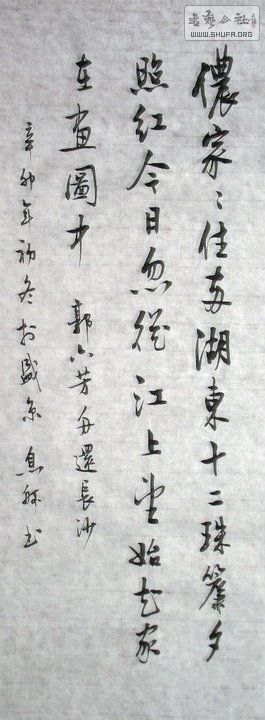 書藝公社
WWW.SHUFA.ORG
儂家〻住兩湖東十二珠簾夕
照紅今日忽從江上望始知家
在畫圖中 郭六芳舟還長沙
辛卯年初冬於盛京 息書